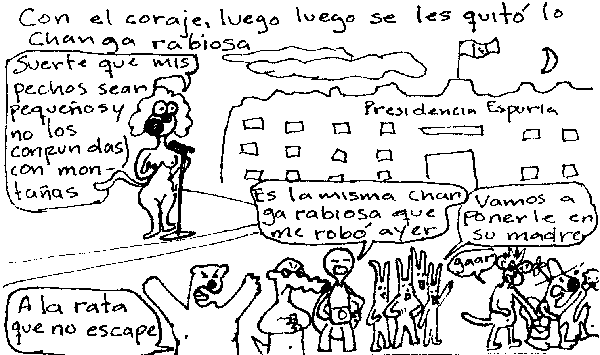 Con el coraje, luego luego se les quitó lo
changa rabiosa
Suerte que mis
pechos sean
pequeños y
no los
confundas
con mon-
tañas
Presidencia Espuria
Es la misma chan
ga rabiosa que
me robó ayer
Vamos a
ponerle en
su madre
gaar
A la rata
que no escape